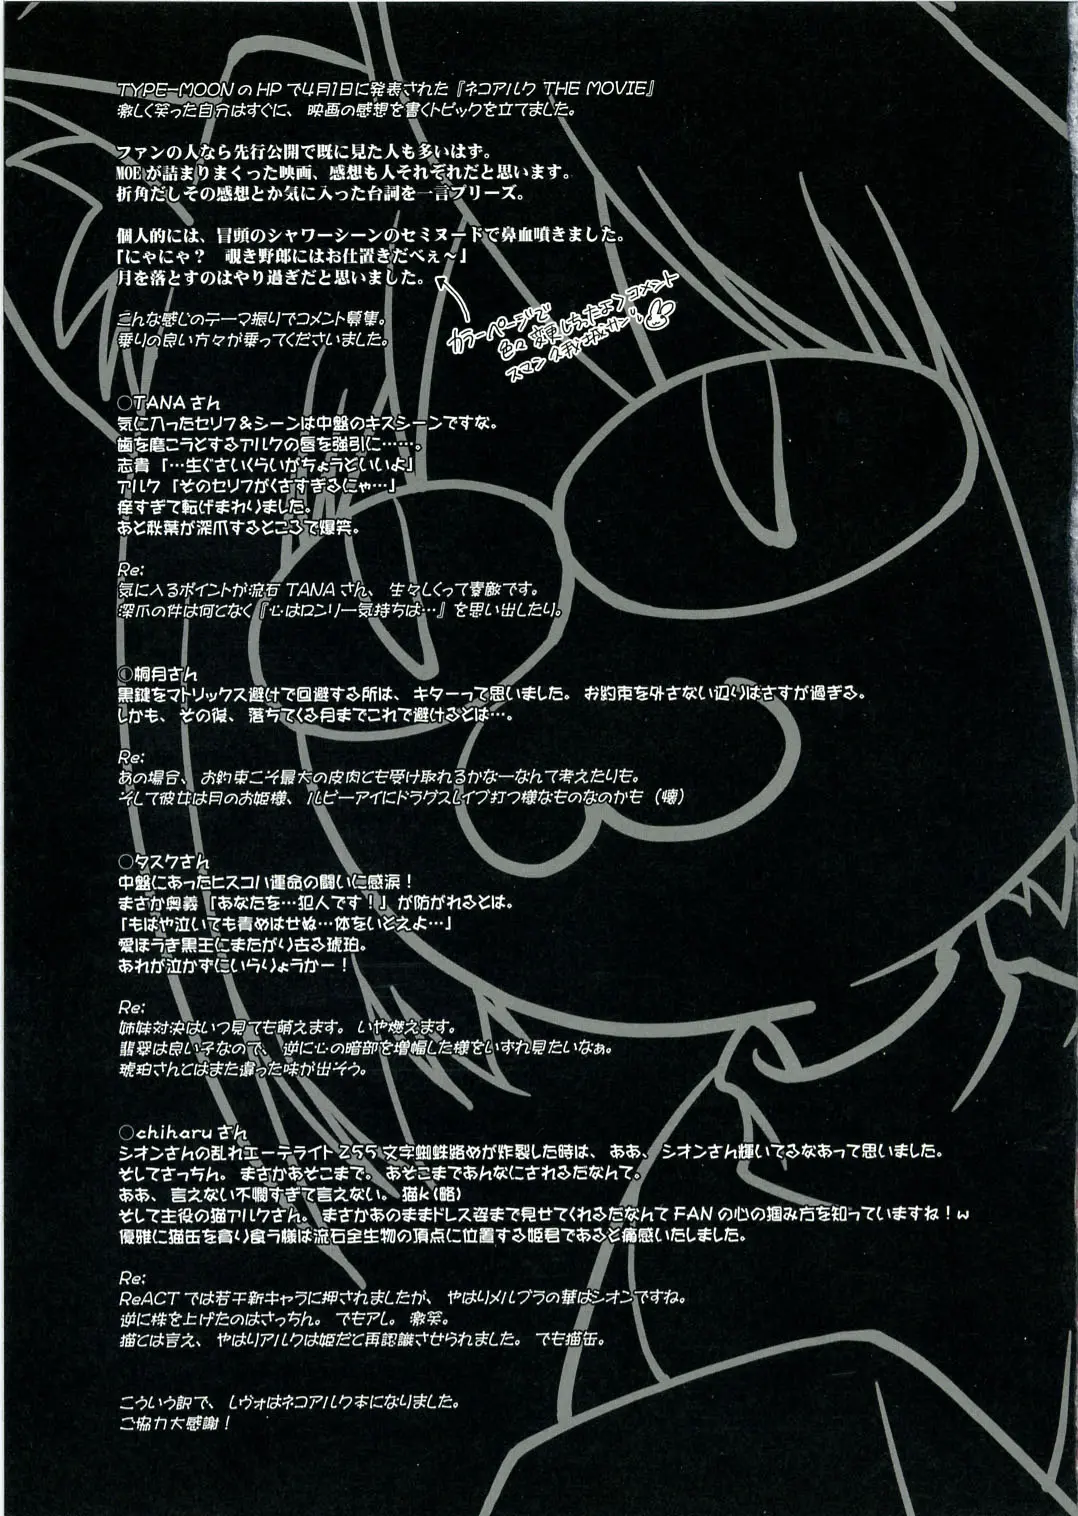 TYPE-MOONのHPで4月1日に発表された『ネコアルク THE MOVIE』
激しく笑った自分はすぐに、映画の感想を書くトピックを立てました。
ファンの人なら先行公開で既に見た人も多いはず。
MOEが詰まりまくった映画、感想も人それぞれだと思います。
折角だしその感想とか気に入った台詞を一言プリーズ。
個人的には、冒頭のシャワーシーンのセミヌードで鼻血噴きました。
「にゃにゃ？　覗き野郎にはお仕置きだべぇ～」
月を落とすのはやり過ぎだと思いました。
カラーページで
色々 変更しちゃったよ＞コメント
スマン
こんな感じのテーマ振りでコメント募集。
乗りの良い方々が乗ってくださいました。
○TANAさん
気に入ったセリフ＆シーンは中盤のキスシーンですな。
歯を磨こうとするアルクの唇を強引に……。
志貴「…生ぐさいくらいがちょうどいいよ」
アルク「そのセリフがくさすぎるにゃ…」
痒すぎて転げまわりました。
あと秋葉が深爪するところで爆笑。
Re:
気に入るポイントが流石TANAさん、生々しくって素敵です。
深爪の件は何となく『心はロンリー気持ちは…』を思い出したり。
○桐月さん
黒鍵をマトリックス避けで回避する所は、キターって思いました。お約束を外さない辺りはさすが過ぎる。
しかも、その後、落ちてくる月までこれで避けるとは…。
Re:
あの場合、お約束こそ最大の皮肉とも受け取れるかなーなんて考えたりも。
そして彼女は月のお姫様、ルビーアイにドラグスレイブ打つ様なものなのかも（壊）
○タスクさん
中盤にあったヒスコハ運命の闘いに感涙！
まさか奥義「あなたを…犯人です！」が防がれるとは。
「もはや泣いても責めはせぬ…体をいとえよ…」
愛ほうき黒王にまたがり去る琥珀。
あれが泣かずにいらりょうかー！
Re:
姉妹対決はいつ見ても萌えます。いや燃えます。
翡翠は良い子なので、逆に心の暗部を増幅した様をいずれ見たいなぁ。
琥珀さんとはまた違った味が出そう。
○chiharuさん
シオンさんの乱れエーテライト255文字蜘蛛絡めが炸裂した時は、ああ、シオンさん輝いてるなあって思いました。
そしてさっちん。まさかあそこまで。あそこまであんなにされるだなんて。
ああ、言えない不憫すぎて言えない。猫k（略）
そして主役の猫アルクさん。まさかあのままドレス姿まで見せてくれるだなんてFANの心の掴み方を知っていますね！w
優雅に猫缶を貪り食う様は流石全生物の頂点に位置する姫君であると痛感いたしました。
Re:
ReACTでは若干新キャラに押されましたが、やはりメルブラの華はシオンですね。
逆に株を上げたのはさっちん。でもアレ。激笑。
猫とは言え、やはりアルクは姫だと再認識させられました。でも猫缶。
こういう訳で、レヴォはネコアルク本になりました。
ご協力大感謝！